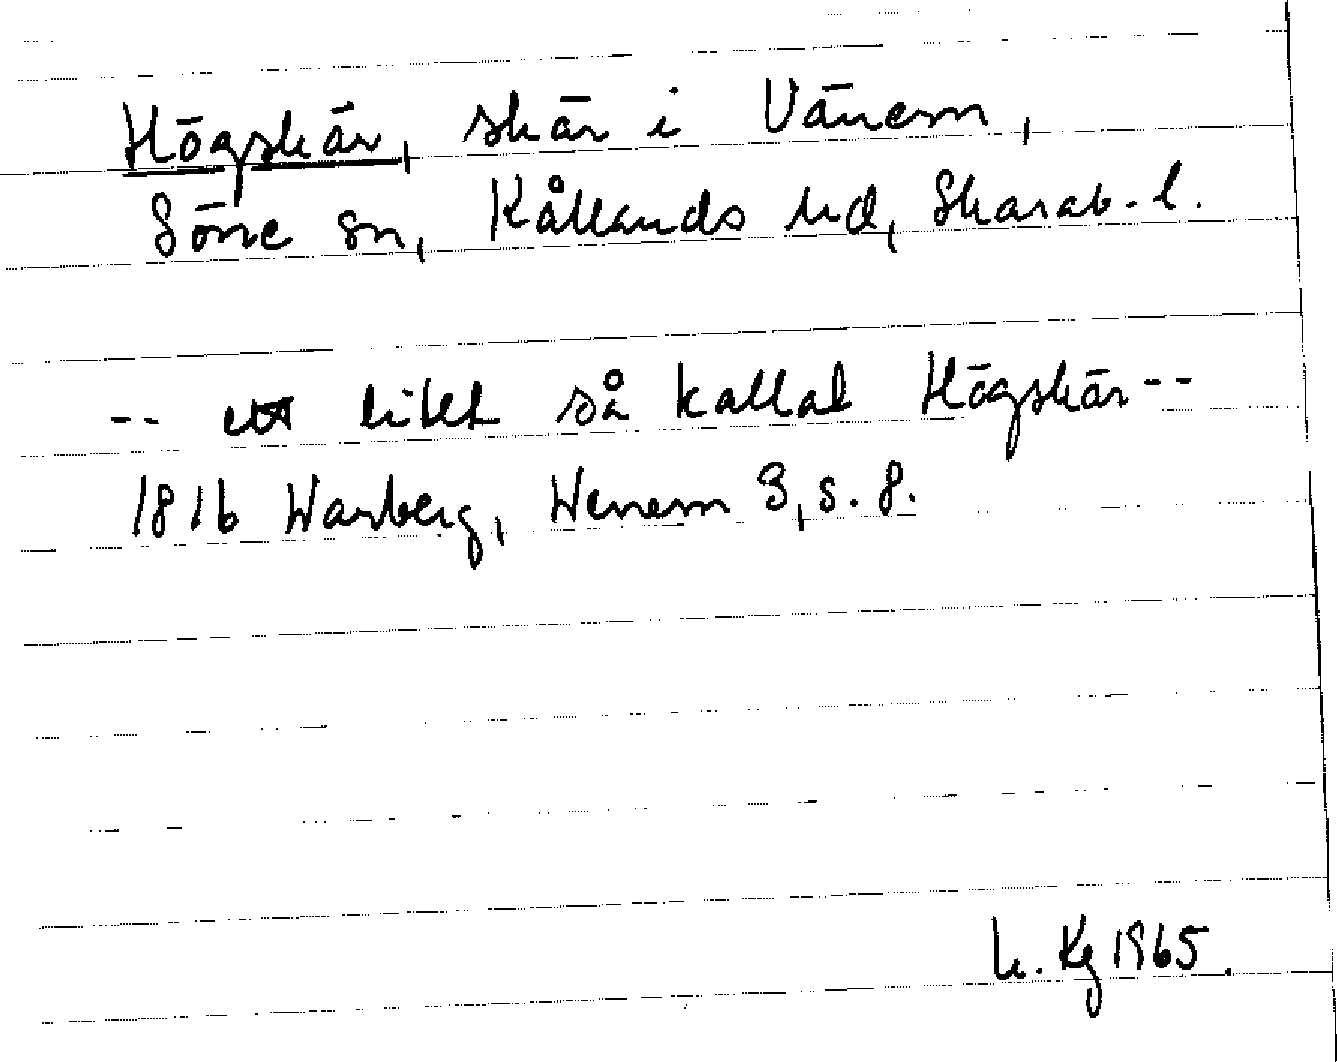 Högskär, skär i Vänern,
Söne sn, Kållands hd, Skarab. l.
-- ett litet så kallat Högskär --
1816 Warberg, Wenern 3, s. 8.
h. Kg 1965.